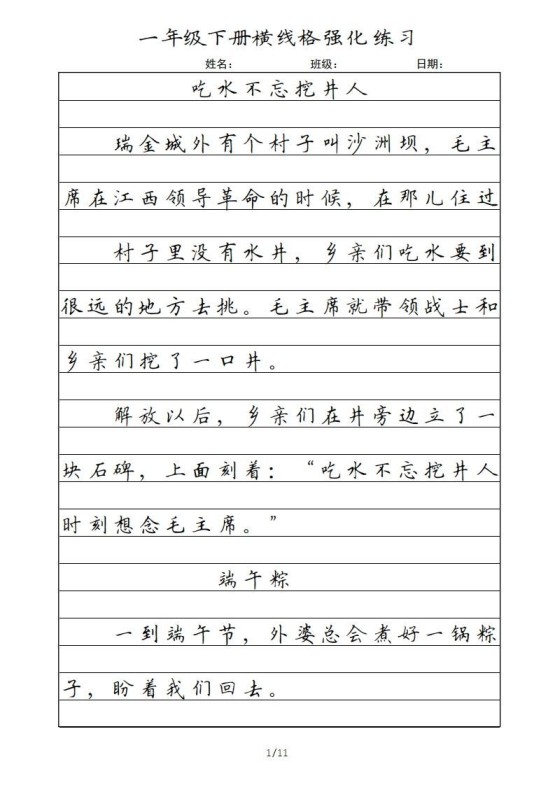 一年级下册横线格强化练习
姓名： 班级： 日期：
吃水不忘挖井人
瑞金城外有个村子叫沙洲坝，毛主
席在江西领导革命的时候，在那儿住过
村子里没有水井，乡亲们吃水要到
很远的地方去挑。毛主席就带领战士和
乡亲们挖了一口井。
解放以后，乡亲们在井旁边立了一
块石碑，上面刻着：“吃水不忘挖井人
时刻想念毛主席。”
端午粽
一到端午节，外婆总会煮好一锅粽
子，盼着我们回去。
1/11